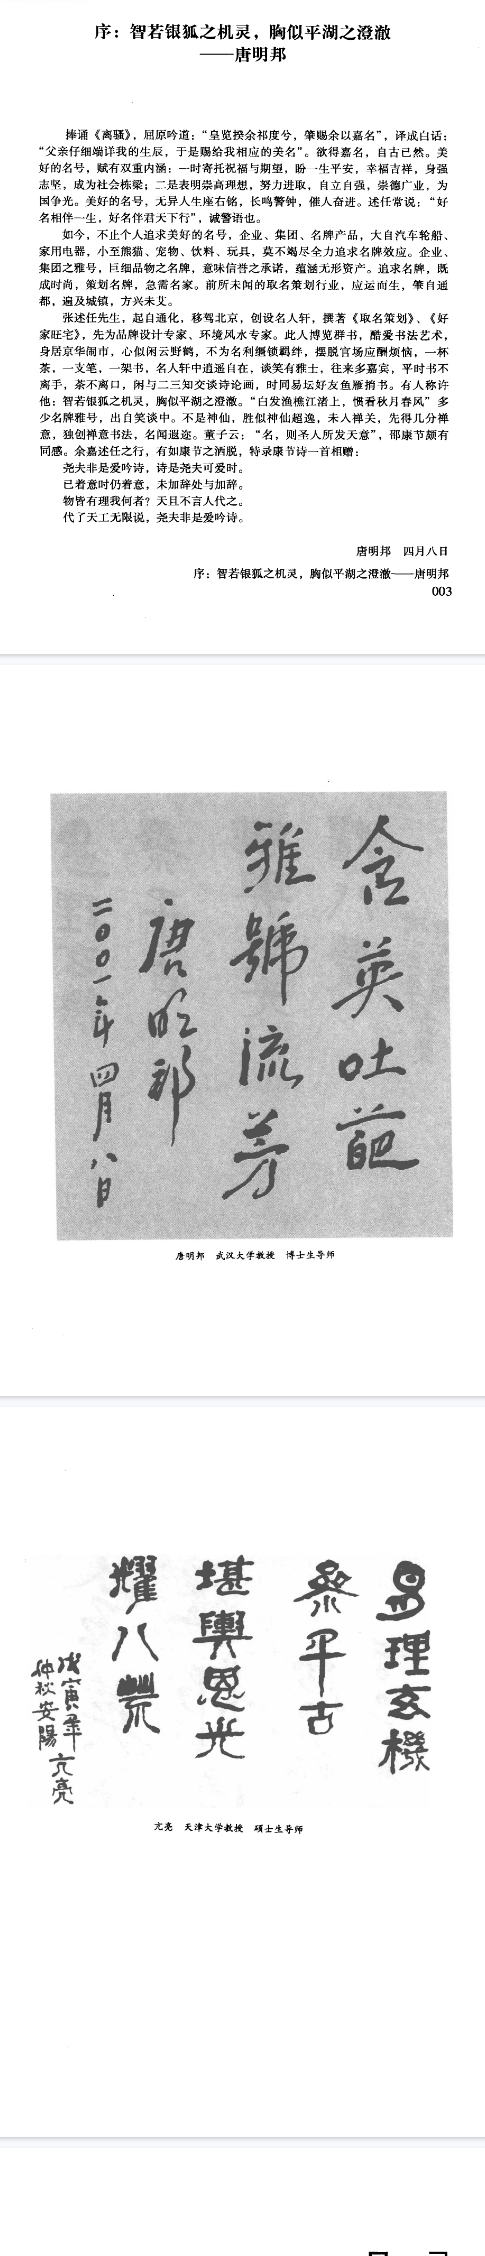 序：智若银狐之机灵，胸似平湖之澄澈
——唐明邦
捧诵《离骚》，屈原吟道：“皇览揆余初度兮，肇赐余以嘉名”，译成白话：
“父亲仔细端详我的生辰，于是赐给我相应的美名”。欲得嘉名，自古已然。美
好的名号，赋有双重内涵：一时寄托祝福与期望，盼一生平安，幸福吉祥，身强
志坚，成为社会栋梁；二是表明崇高理想，努力进取，自立自强，崇德广业，为
国争光。美好的名号，无异人生座右铭，长鸣警钟，催人奋进。述任常说：“好
名相伴一生，好名伴君天下行”，诚警语也。
如今，不止个人追求美好的名号，企业、集团、名牌产品，大自汽车轮船、
家用电器，小至熊猫、宠物、饮料、玩具，莫不竭尽全力追求名牌效应。企业、
集团之雅号，巨细品物之名牌，意味信誉之承诺，蕴涵无形资产。追求名牌，既
成时尚，策划名牌，急需名家。前所未闻的取名策划行业，应运而生，肇自通
都，遍及城镇，方兴未艾。
张述任先生，起自通化，移驾北京，创设名人轩，撰著《取名策划》、《好
家旺宅》，先为品牌设计专家、环境风水专家。此人博览群书，酷爱书法艺术，
身居京华闹市，心似闲云野鹤，不为名利缰锁羁绊，摆脱官场应酬烦恼，一杯
茶，一支笔，一架书，名人轩中逍遥自在，谈笑有雅士，往来多嘉宾，平时书不
离手，茶不离口，闲与二三知交谈诗论画，时同易坛好友鱼雁捎书。有人称许
他：智若银狐之机灵，胸似平湖之澄澈。“白发渔樵江渚上，惯看秋月春风”多
少名牌雅号，出自笑谈中。不是神仙，胜似神仙超逸，未入禅关，先得几分禅
意，独创禅意书法，名闻遐迩。董子云：“名，则圣人所发天意”，邵康节颇有
同感。余嘉述任之行，有如康节之洒脱，特录康节诗一首相赠：
尧夫非是爱吟诗，诗是尧夫可爱时。
已着意时仍着意，未加辞处与加辞。
物皆有理我何者？天且不言人代之。
代了天工无限说，尧夫非是爱吟诗。
唐明邦 四月八日
序：智若银狐之机灵，胸似平湖之澄澈——唐明邦
003
含英吐葩
雅號流芳
唐明邦
二〇〇一年四月八日
唐明邦 武汉大学教授 博士生导师
易理玄機
參平古
堪輿恩光
耀八荒
戊寅年
仲秋安陽
亢亮
亢亮 天津大学教授 硕士生导师